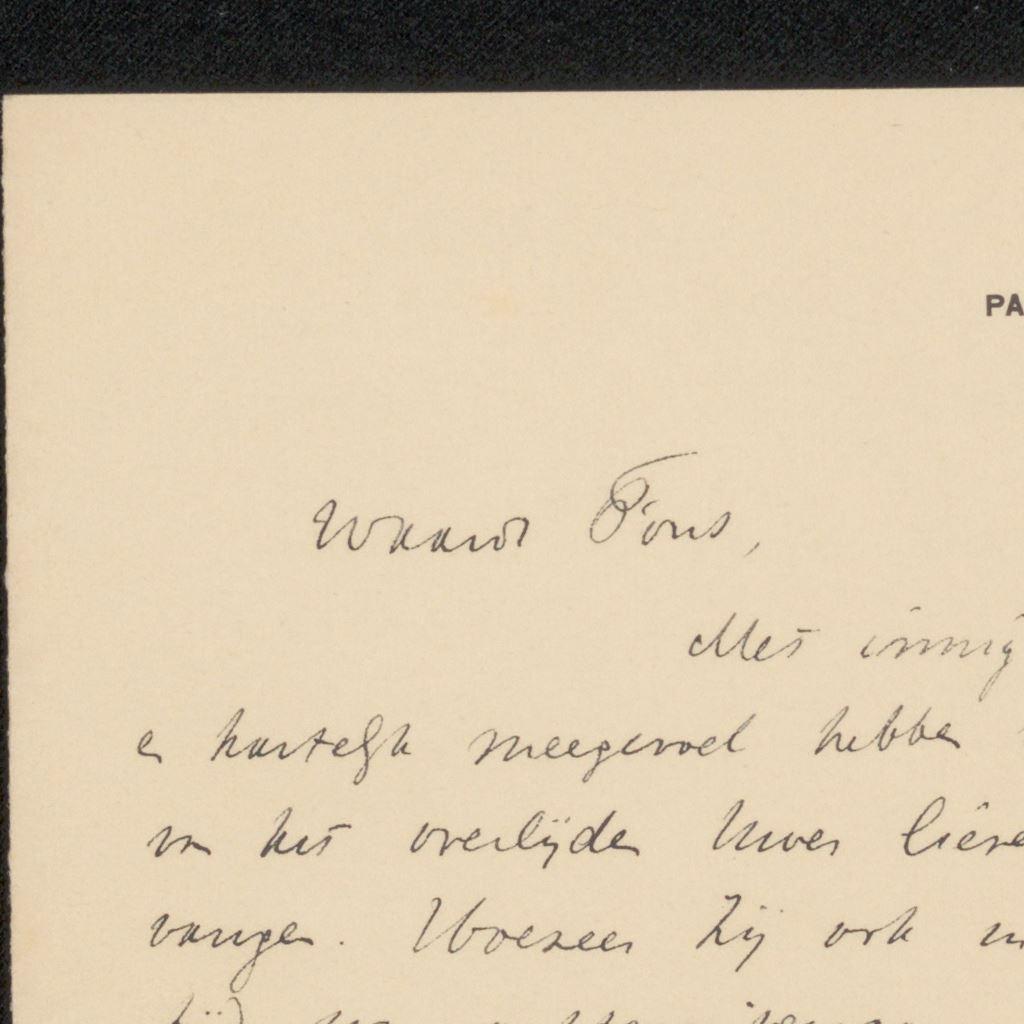 PA
Waarde Fons,
Met innig
en hartelijk meegevoel hebben
van het overlijden Uwer lieve
vangen. Hoezeer zij ook
tijd